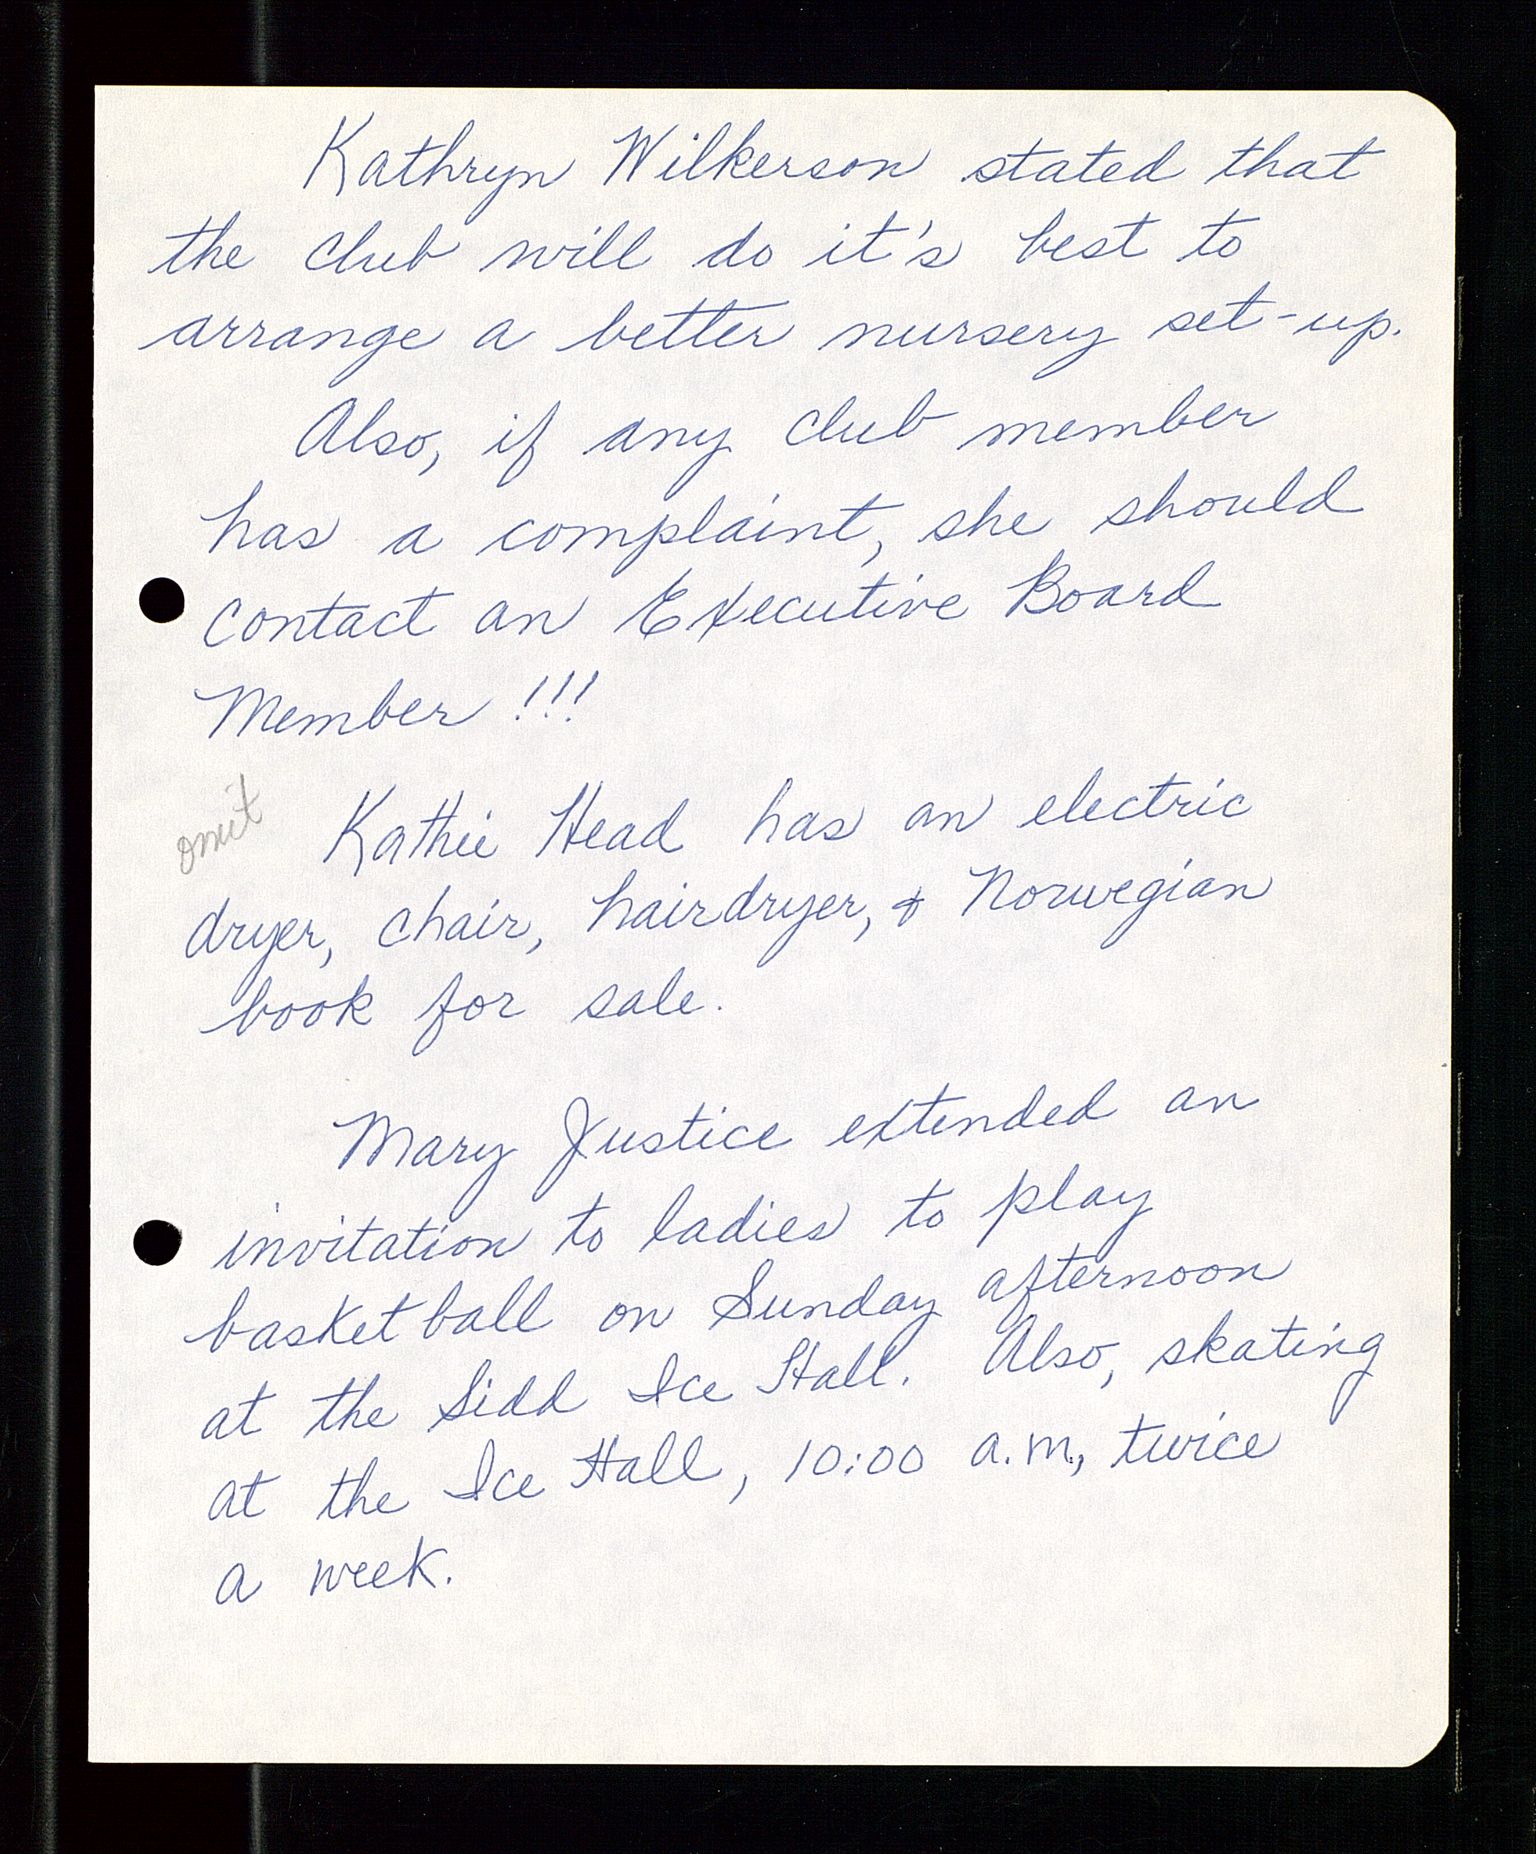 Kathryn Wilkerson stated that
the club will do it's best to
arrange a better nursery set-up.
Also, if any club member
has a complaint, she should
contact an Executive Board
Member !!!
omit
Kathie Head has an electric
dryer, chair, hairdryer, & Norwegian
book for sale.
Mary Justice extended an
invitation to ladies to play
basketball on Sunday afternoon
at the Sidd Ice Hall. Also, skating
at the Ice Hall, 10:00 a.m., twice
a week.